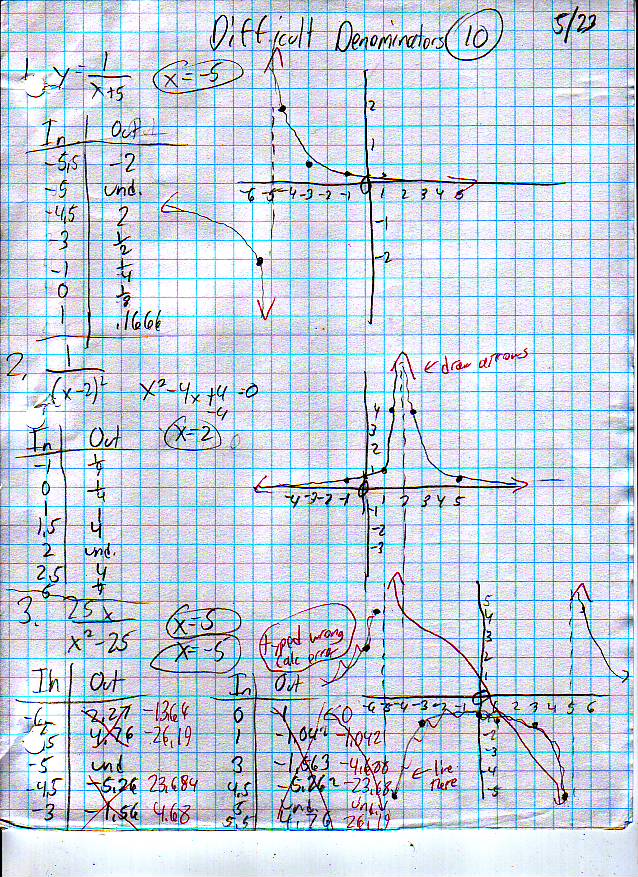 Difficult Denominators 10 5/23
1. y = 1/(x+5) x = -5
In | Out
-5,5 | -2
-5 | und.
-4,5 | 2
-3 | 1/2
-1 | 1/4
0
1 | .1666
2
1
-1
-2
-6 -5 -4 -3 -2 -1 1 2 3 4 5
2. 1/(x-2)² x²-4x+4=0
-4
In | Out x=2 0
-1
0 | 1/4
1 | 1
1,5 | 4
2 | und.
2,5 | 4
← draw arrows
4
3
2
1
-4 -3 -2 -1 1 2 3 4 5
-1
-2
-3
3. 25x/(x²-25) x=5
x=-5
typed wrong
calc error
In | Out In | Out
-13.64 0 0
-26,19 1 -1,042
-5 | und 3 -1,563 -4,688
-4,5 | -5,26 23,684 4,5 -5,262 -23,68
-3 | -1,56 4.68 5 und. und.
5,5 4,76 26,19
5
4
3
2
1
-6 -5 -4 -3 -2 -1 1 2 3 4 5 6
-2
-3
-4
-5
← line
here